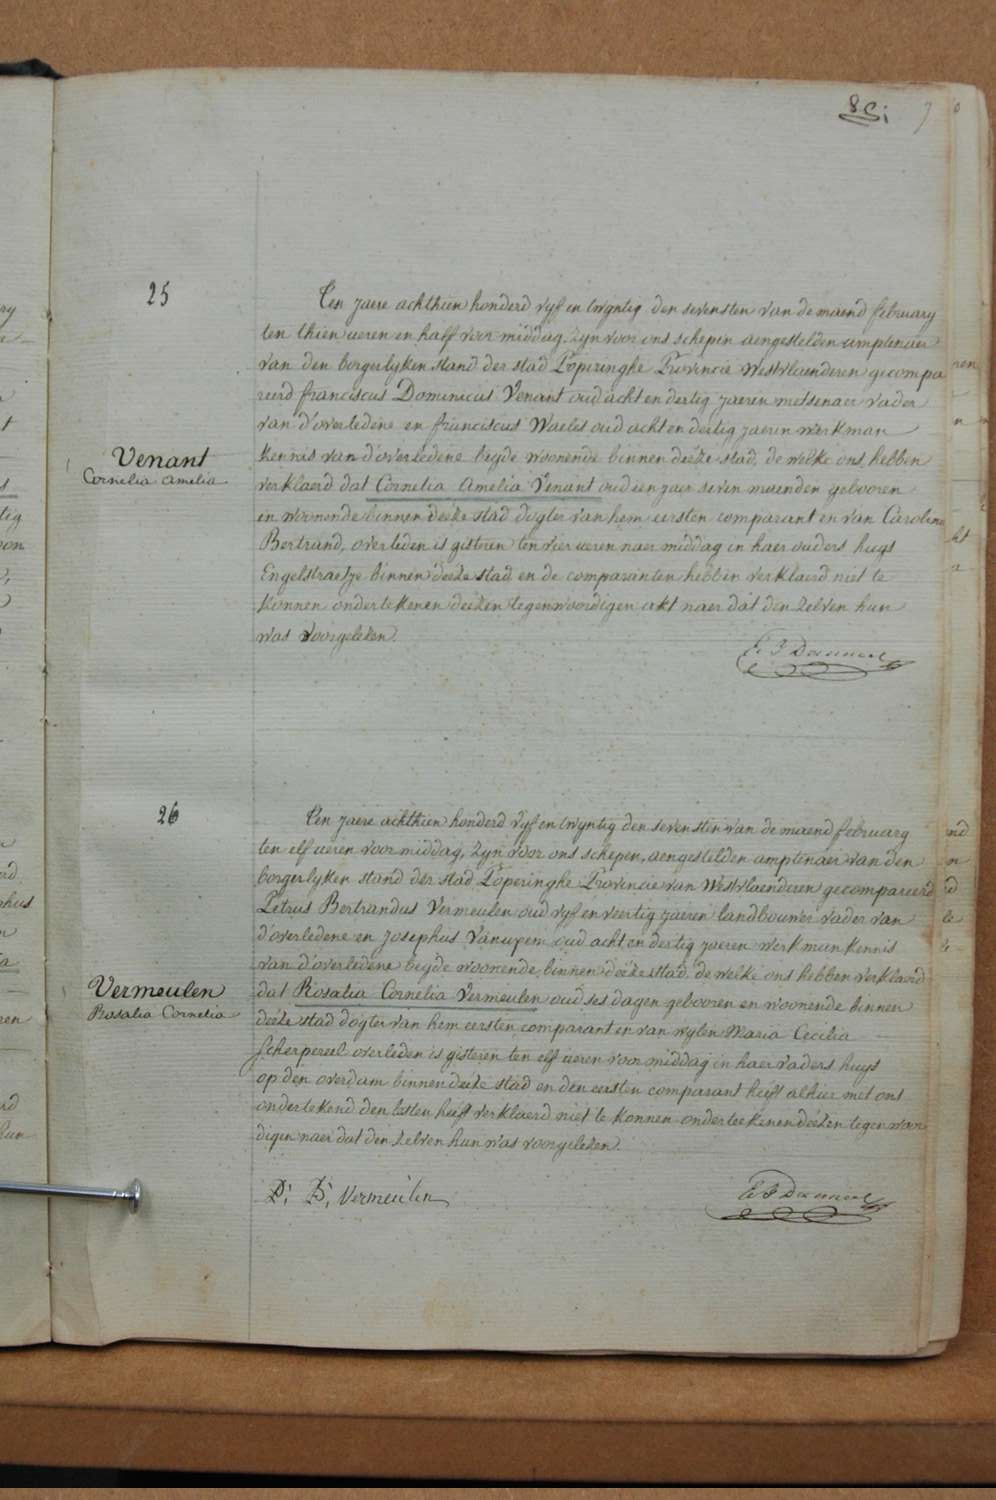 8Ci
25
Ten jaere achthien honderd vyf en twyntig den sevensten van de maend february
ten thien ueren en half voor middag. Zyn voor ons schepen aengestelden amptenaer
van den borgerlyken stand der stad Poperinghe Provincie Westvlaenderen gecompa
reerd franciscus Dominicus Venant oud acht en dertig jaeren metsenaer vader
van d'overledene en franciscus Waeles oud acht en dertig jaeren werkman
Venant
Cornelia Amelia
kennis van d'overledene beyde woonende binnen deeze stad, de welke ons hebben
verklaerd dat Cornelia Amelia Venant oud een jaer seven maenden gebooren
en woonende binnen deeze stad dogter van hem eersten comparant en van Caroline
Bertrand, overleden is gisteren ten vier ueren naer middag in haer ouders huys
Engelstraetje binnen deeze stad en de comparanten hebben verklaerd niet te
konnen onderteekenen deezen tegenwoordigen akt naer dat den zelven hun
was voorgelezen.
26
Ten jaere achthien honderd vyf en twyntig den sevensten van de maend february
ten elf ueren voor middag, zyn voor ons schepen, aengestelden amptenaer van den
borgerlyken stand der stad Poperinghe Provincie van Westvlaenderen gecompareerd
Petrus Bertrandus Vermeulen oud vyf en veertig jaeren landbouwer vader van
d'overledene en Josephus Vanupem oud acht en dertig jaeren werkman kennis
van d'overledene beyde woonende binnen deeze stad, de welke ons hebben verklaerd
Vermeulen
Rosalia Cornelia
dat Rosalia Cornelia Vermeulen oud ses dagen gebooren en woonende binnen
deeze stad dogter van hem eersten comparant en van wylen Maria Cecilia
Scherpereel overleden is gisteren ten elf ueren voor middag in haer vaders huys
op den overdam binnen deeze stad en den eersten comparant heeft alhier met ons
onderteekend den lesten heeft verklaerd niet te konnen onderteekenen deezen tegenwoor
digen naer dat den zelven hun was voorgelezen.
P. B. Vermeulen